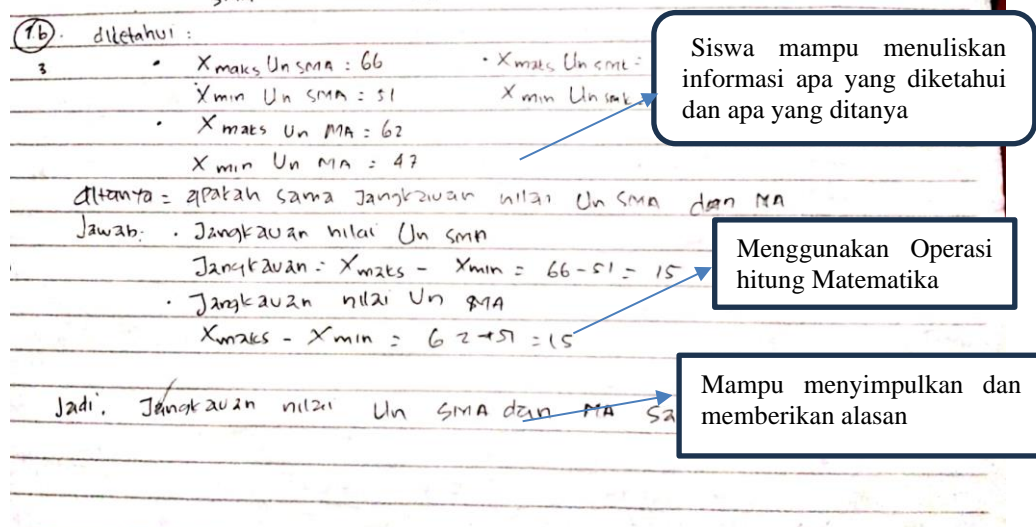 1.b). diketahui :
3
• X maks Un SMA : 66 • X maks Un smk :
X min Un SMA : 51 X min Un smk
• X maks Un MA : 62
X min Un MA : 47
ditanya = apakah sama Jangkauan nilai Un SMA dan MA
Jawab: • Jangkauan nilai Un SMA
Jangkauan = Xmaks - Xmin = 66 - 51 = 15
• Jangkauan nilai Un MA
Xmaks - Xmin = 62 = 15
Jadi, Jangkauan nilai Un SMA dan MA sa
Siswa mampu menuliskan
informasi apa yang diketahui
dan apa yang ditanya
Menggunakan Operasi
hitung Matematika
Mampu menyimpulkan dan
memberikan alasan